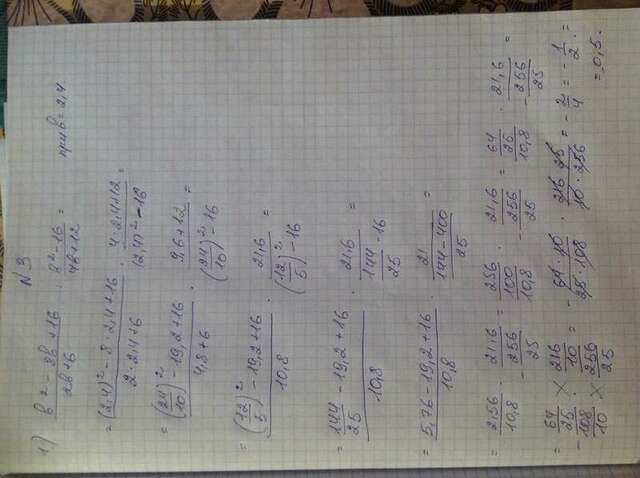 N 3
1) (в² - 8в + 16)/(2в+6) : (в² - 16)/(4в+12) = при в = 2,4
= ((2,4)² - 8 · 2,4 + 16)/(2 · 2,4 + 6) · (4 · 2,4 + 12)/((2,4)² - 16) =
= ((24/10)² - 19,2 + 16)/(4,8 + 6) · (9,6 + 12)/((24/10)² - 16) =
= ((12/5)² - 19,2 + 16)/(10,8) · (21,6)/((12/5)² - 16) =
= (144/25 - 19,2 + 16)/(10,8) · (21,6)/(144/25 - 16) =
= (5,76 - 19,2 + 16)/(10,8) · (21)/((144 - 400)/25) =
= (2,56)/(10,8) · (21,6)/(-256/25) = (256/100)/(10,8) · (21,6)/(-256/25) = (64/25)/(10,8) · (21,6)/(-256/25) =
= - (64/25)/(108/10) · (216/10)/(256/25) = - (64 · 10)/(25 · 108) · (216 · 25)/(10 · 256) = - 2/4 = - 1/2 =
= 0,5.